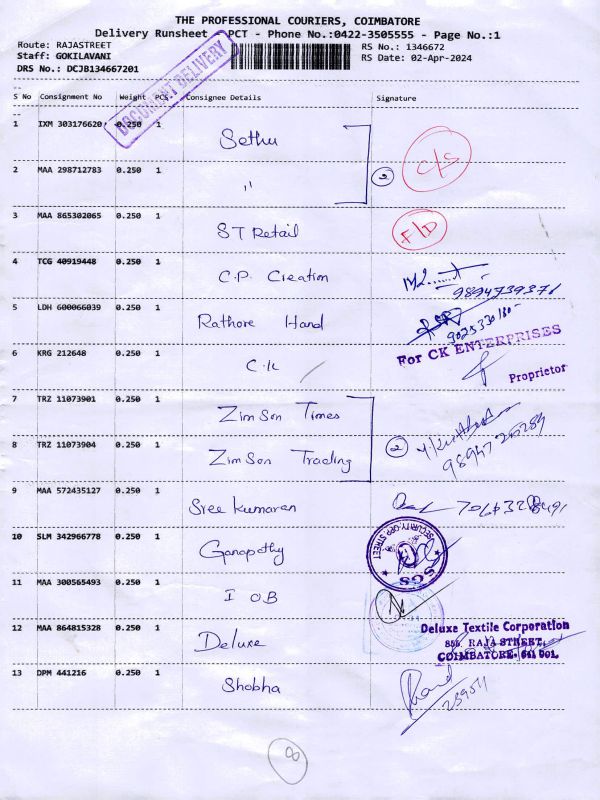 THE PROFESSIONAL COURIERS, COIMBATORE
Delivery Runsheet - PCT - Phone No.:0422-3505555 - Page No.:1
Route: RAJASTREET
RS No.: 1346672
Staff: GOKILAVANI
RS Date: 02-Apr-2024
DRS No.: DCJB134667201
DOCUMENT DELIVERY
S No Consignment No Weight PCS Consignee Details Signature
1 IXM 303176620 0.250 1 Sethu
2 MAA 298712783 0.250 1 " 2 C/S
3 MAA 865302065 0.250 1 ST Retail F/D
4 TCG 40919448 0.250 1 C.P. Creation
9894739376
5 LDH 600066039 0.250 1 Rathore Hand
9025330180
6 KRG 212648 0.250 1 C.K For CK ENTERPRISES
Proprietor
7 TRZ 11073901 0.250 1 Zimson Times
8 TRZ 11073904 0.250 1 Zimson Trading 2
9 MAA 572435127 0.250 1 Sree kumaran
10 SLM 342966778 0.250 1 Ganapathy
SECURITY-OPP STREET
SGS
11 MAA 300565493 0.250 1 I OB
12 MAA 864815328 0.250 1 Deluxe
Deluxe Textile Corporation
855, RAJA STREET,
COIMBATORE- 641 001.
13 DPM 441216 0.250 1 Shobha
8